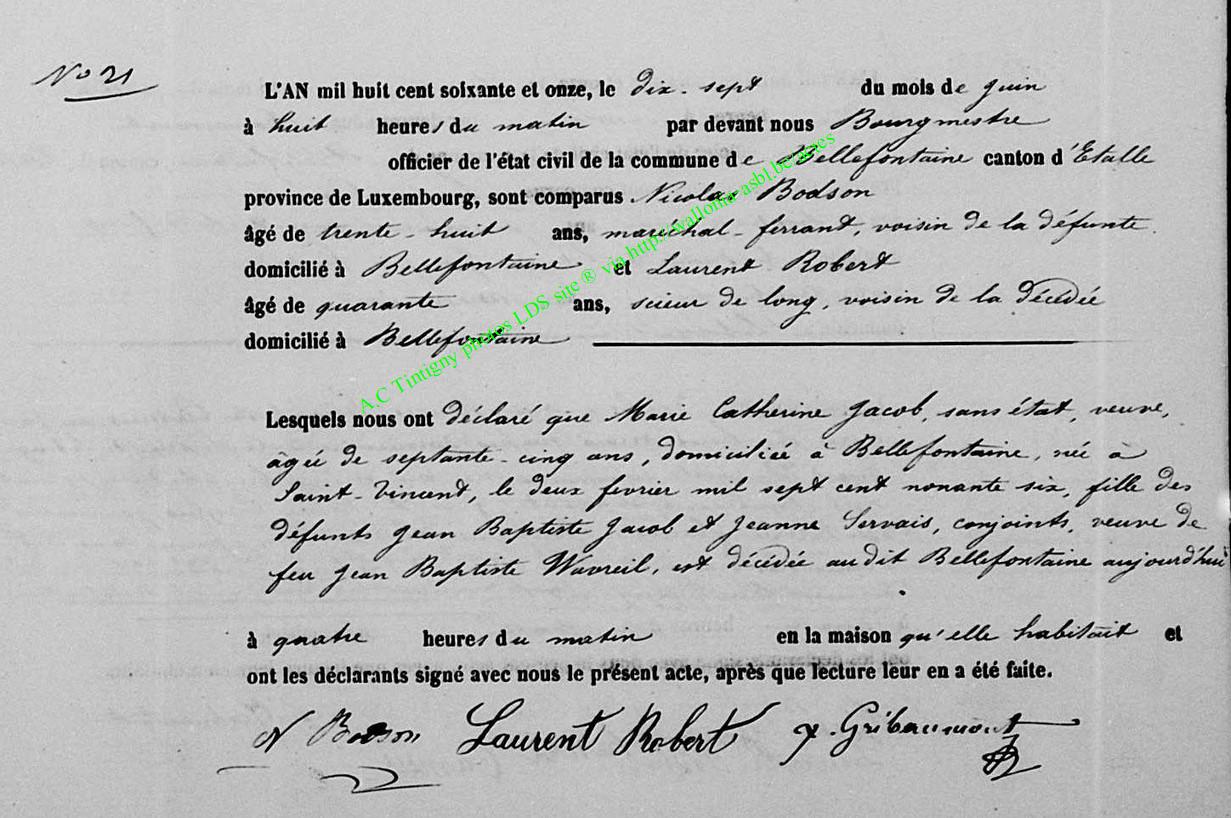 No 21
L'AN mil huit cent soixante et onze, le dix-sept du mois de juin
à huit heures du matin par devant nous Bourgmestre
officier de l'état civil de la commune de Bellefontaine canton d'Etalle
province de Luxembourg, sont comparus Nicolas Bodson
âgé de trente-huit ans, maréchal-ferrant, voisin de la défunte.
domicilié à Bellefontaine et Laurent Robert
âgé de quarante ans, scieur de long, voisin de la décédée
domicilié à Bellefontaine
Lesquels nous ont déclaré que Marie Catherine Jacob, sans état, veuve,
âgée de septante-cinq ans, domiciliée à Bellefontaine, née à
Saint-Vincent, le deux fevrier mil sept cent nonante six, fille des
défunts Jean Baptiste Jacob et Jeanne Servais, conjoints, veuve de
feu Jean Baptiste Wavreil, est décédée audit Bellefontaine aujourd'hui
à quatre heures du matin en la maison qu'elle habitait et
ont les déclarants signé avec nous le présent acte, après que lecture leur en a été faite.
N Bodson Laurent Robert Gribaumont
A.C Tintigny photos LDS site ® via http://wallonia-asbl.be/actes